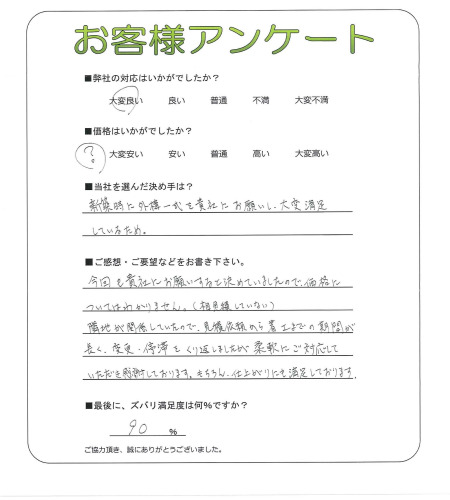 お客様アンケート
■弊社の対応はいかがでしたか?
大変良い 良い 普通 不満 大変不満
■価格はいかがでしたか?
? 大変安い 安い 普通 高い 大変高い
■当社を選んだ決め手は?
新築時に外構一式を貴社にお願いし、大変満足
しているため。
■ご感想・ご要望などをお書き下さい。
今回も貴社にお願いすると決めていましたので、価格に
ついてはわかりません。(相見積していない)
隣地が関係していたので、見積依頼から着工までの期間が
長く、変更・停滞をくり返しましたが柔軟にご対応して
いただき感謝しております。もちろん、仕上がりにも満足しております。
■最後に、ズバリ満足度は何%ですか?
90 %
ご協力頂き、誠にありがとうございました。